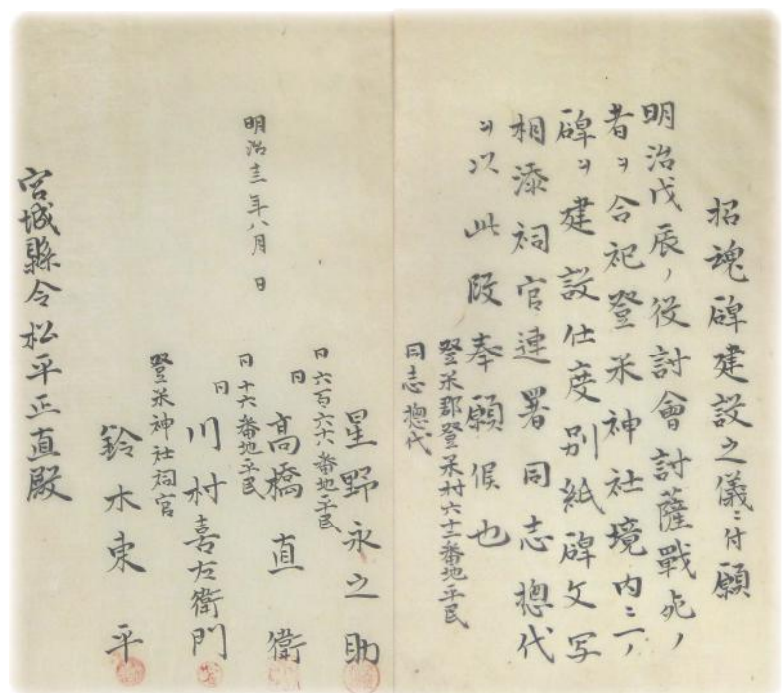 招魂碑建設之儀ニ付願
明治戊辰ノ役討會討薩戰死ノ
者ヲ合祀登米神社境内ニ一ノ
碑ヲ建設仕度別紙碑文写
相添祠官連署同志惣代
ヲ以此段奉願候也
登米郡登米村六十二番地平民
同志惣代
星野永之助
同六百六十八番地平民
同
高橋直衛
同十六番地平民
同
川村喜左衛門
登米神社祠官
鈴木東平
明治十三年八月 日
宮城縣令松平正直殿